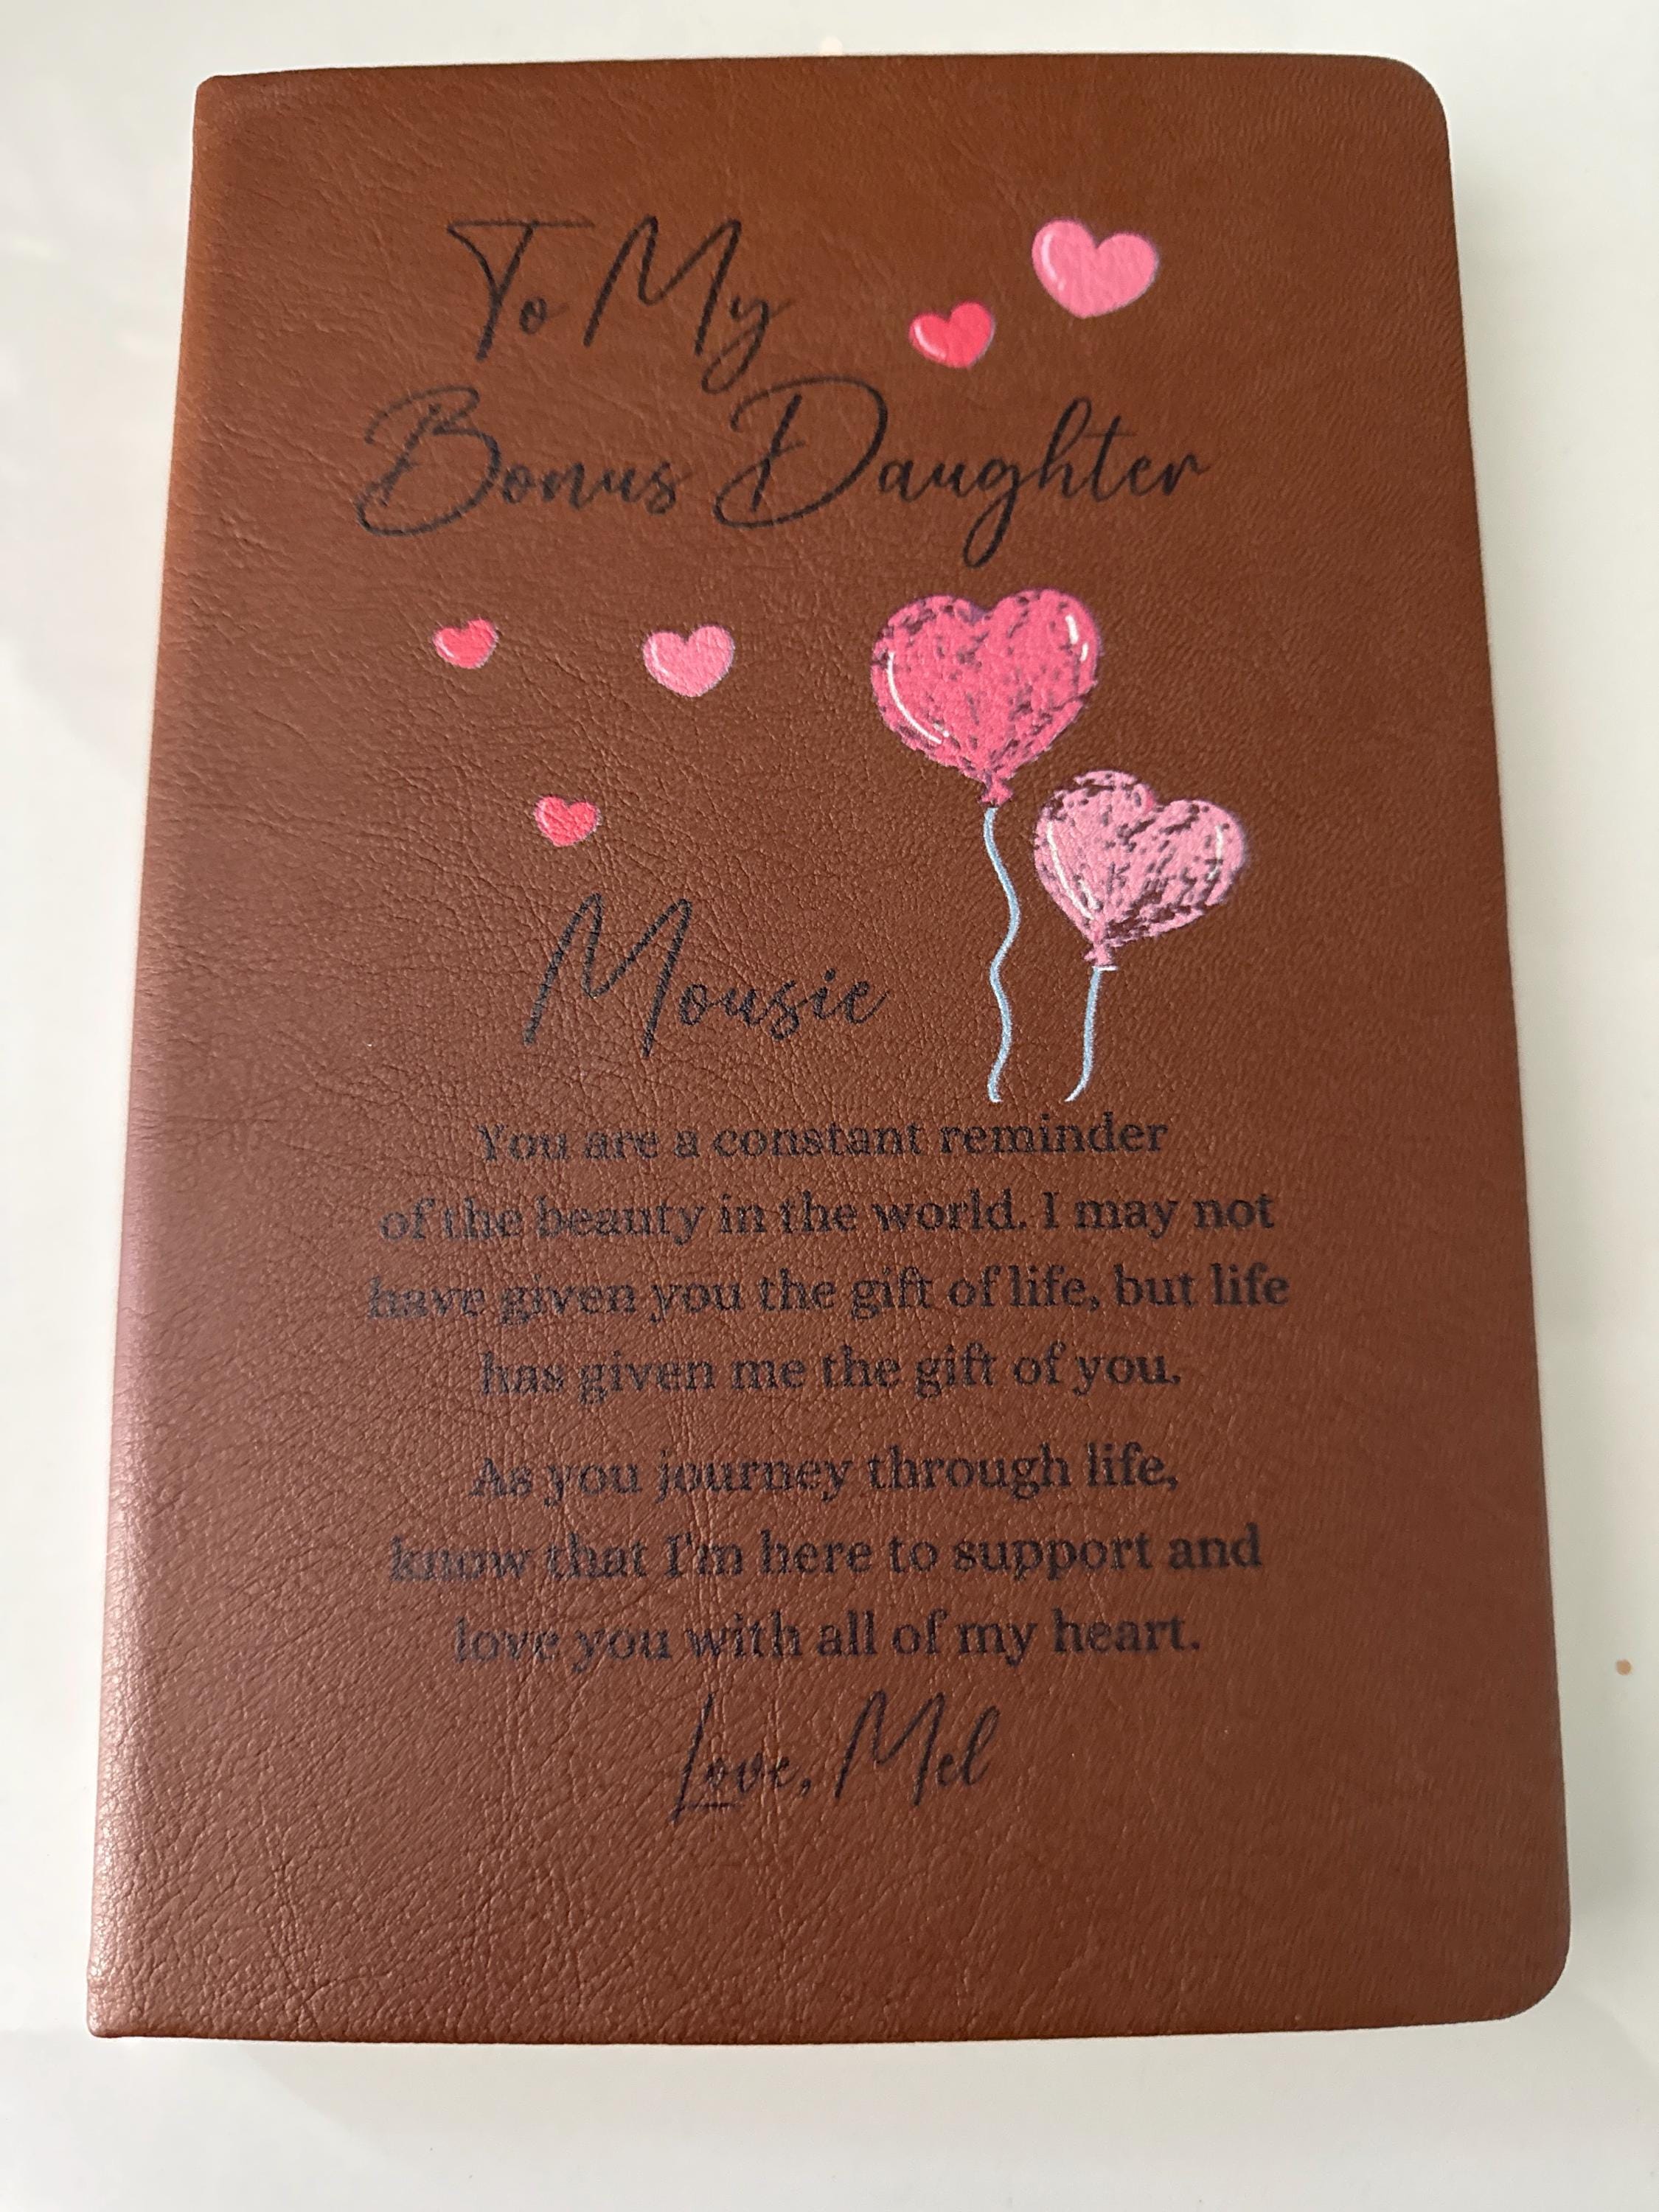 To My
Bonus Daughter
Mousie
You are a constant reminder
of the beauty in the world. I may not
have given you the gift of life, but life
has given me the gift of you.
As you journey through life,
know that I'm here to support and
love you with all of my heart.
Love, Mel